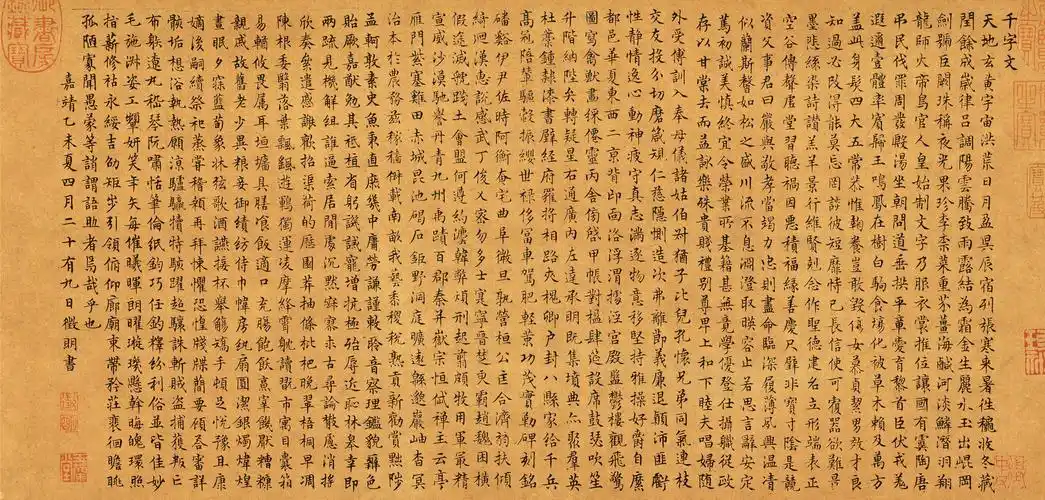 千字文
天地玄黃宇宙洪荒日月盈昃辰宿列張寒來暑往秋收冬藏
閏餘成歲律呂調陽雲騰致雨露結為霜金生麗水玉出崑岡
劍號巨闕珠稱夜光果珍李柰菜重芥薑海鹹河淡鱗潛羽翔
龍師火帝鳥官人皇始制文字乃服衣裳推位讓國有虞陶唐
弔民伐罪周發殷湯坐朝問道垂拱平章愛育黎首臣伏戎羌
遐邇壹體率賓歸王鳴鳳在樹白駒食場化被草木賴及萬方
蓋此身髮四大五常恭惟鞠養豈敢毀傷女慕貞絜男效才良
知過必改得能莫忘罔談彼短靡恃己長信使可覆器欲難量
墨悲絲染詩讚羔羊景行維賢剋念作聖德建名立形端表正
空谷傳聲虛堂習聽禍因惡積福緣善慶尺璧非寶寸陰是競
資父事君曰嚴與敬孝當竭力忠則盡命臨深履薄夙興溫凊
似蘭斯馨如松之盛川流不息淵澄取映容止若思言辭安定
篤初誠美慎終宜令榮業所基籍甚無竟學優登仕攝職從政
存以甘棠去而益詠樂殊貴賤禮別尊卑上和下睦夫唱婦隨
外受傅訓入奉母儀諸姑伯叔猶子比兒孔懷兄弟同氣連枝
交友投分切磨箴規仁慈隱惻造次弗離節義廉退顛沛匪虧
性靜情逸心動神疲守真志滿逐物意移堅持雅操好爵自縻
都邑華夏東西二京背邙面洛浮渭據涇宮殿盤鬱樓觀飛驚
圖寫禽獸畫綵僊靈丙舍傍啟甲帳對楹肆筵設席鼓瑟吹笙
升階納陛弁轉疑星右通廣內左達承明既集墳典亦聚群英
杜稾鍾隸漆書壁經府羅將相路俠槐卿戶封八縣家給千兵
高冠陪輦驅轂振纓世祿侈富車駕肥輕策功茂實勒碑刻銘
磻谿伊尹佐時阿衡奄宅曲阜微旦孰營桓公匡合濟弱扶傾
綺迴漢惠說感武丁俊乂密勿多士寔寧晉楚更霸趙魏困橫
假途滅虢踐土會盟何遵約法韓弊煩刑起翦頗牧用軍最精
宣威沙漠馳譽丹青九州禹跡百郡秦并嶽宗恒岱禪主云亭
雁門紫塞雞田赤城昆池碣石鉅野洞庭曠遠綿邈巖岫杳冥
治本於農務茲稼穡俶載南畝我藝黍稷稅熟貢新勸賞黜陟
孟軻敦素史魚秉直庶幾中庸勞謙謹敕聆音察理鑑貌辯色
貽厥嘉猷勉其祗植省躬譏誡寵增抗極殆辱近恥林皋幸即
兩疏見機解組誰逼索居閒處沉默寂寥求古尋論散慮逍遙
欣奏累遣慼謝歡招渠荷的歷園莽抽條枇杷晚翠梧桐早凋
陳根委翳落葉飄颻遊鵾獨運凌摩絳霄耽讀翫市寓目囊箱
易輶攸畏屬耳垣牆具膳飡飯適口充腸飽飫烹宰飢厭糟糠
親戚故舊老少異糧妾御績紡侍巾帷房紈扇圓潔銀燭煒煌
晝眠夕寐藍筍象床弦歌酒讌接杯舉觴矯手頓足悅豫且康
嫡後嗣續祭祀蒸嘗稽顙再拜悚懼恐惶牋牒簡要顧答審詳
骸垢想浴執熱願涼驢騾犢特駭躍超驤誅斬賊盜捕獲叛亡
布射遼丸嵇琴阮嘯恬筆倫紙鈞巧任釣釋紛利俗並皆佳妙
毛施淑姿工顰妍笑年矢每催曦暉朗曜璇璣懸斡晦魄環照
指薪修祜永綏吉劭矩步引領俯仰廊廟束帶矜莊徘徊瞻眺
孤陋寡聞愚蒙等誚謂語助者焉哉乎也
嘉靖乙未夏四月二十有九日徵明書